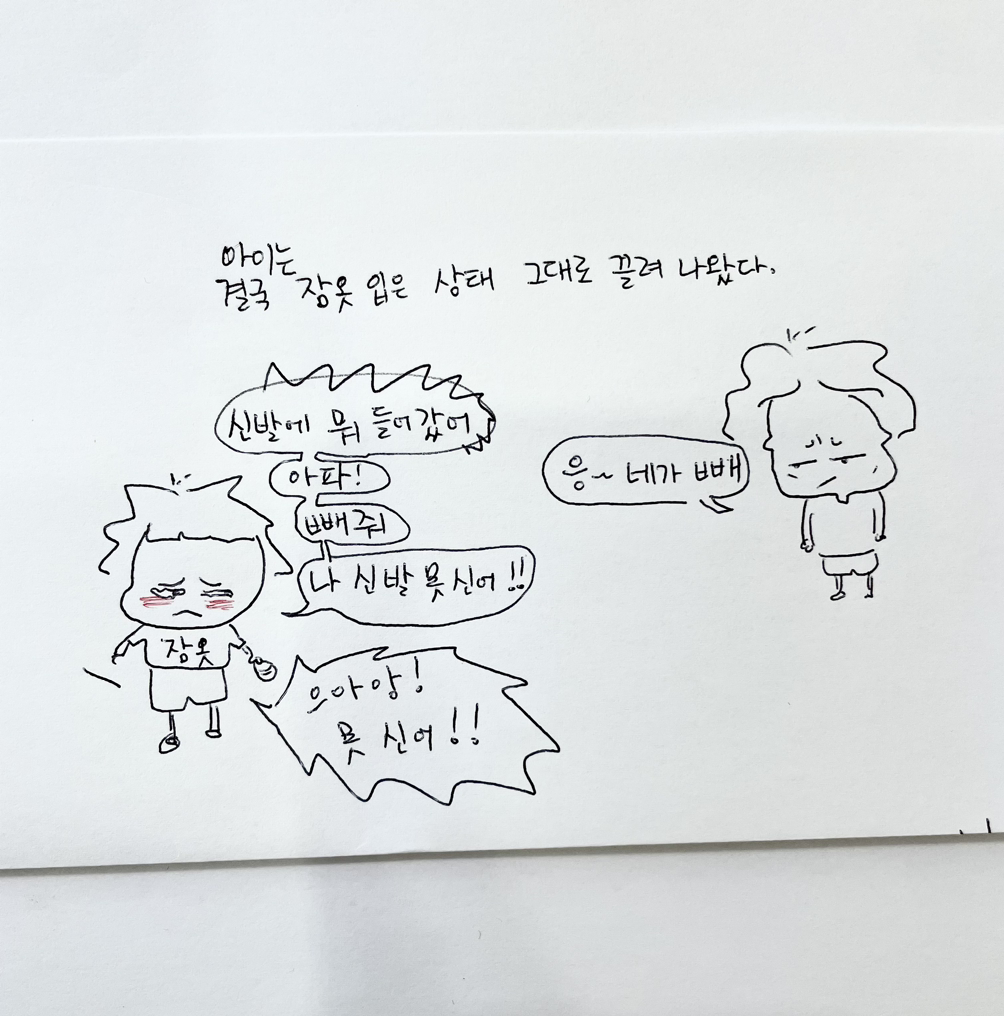 아이는
결국 잠옷 입은 상태 그대로 끌려 나왔다.
신발에 뭐 들어갔어
아파!
빼줘
나 신발 못 신어!!
응~ 네가 빼
잠옷
으아앙!
못 신어!!